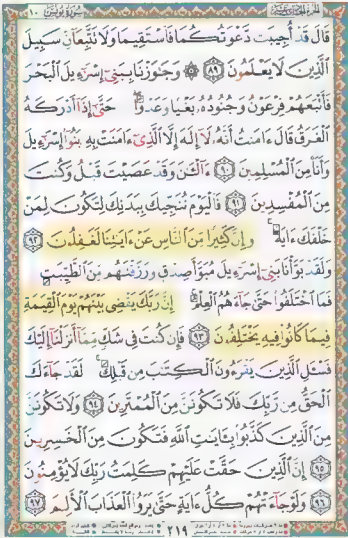 الجزء الحادي عشر
سورة يونس ١٠
قَالَ قَدْ أُجِيبَت دَّعْوَتُكُمَا فَٱسْتَقِيمَا وَلَا تَتَّبِعَآنِّ سَبِيلَ
ٱلَّذِينَ لَا يَعْلَمُونَ ٨٩ ۞ وَجَٰوَزْنَا بِبَنِىٓ إِسْرَٰٓءِيلَ ٱلْبَحْرَ
فَأَتْبَعَهُمْ فِرْعَوْنُ وَجُنُودُهُۥ بَغْيًا وَعَدْوًا ۖ حَتَّىٰٓ إِذَآ أَدْرَكَهُ
ٱلْغَرَقُ قَالَ ءَامَنتُ أَنَّهُۥ لَآ إِلَٰهَ إِلَّا ٱلَّذِىٓ ءَامَنَتْ بِهِۦ بَنُوٓا۟ إِسْرَٰٓءِيلَ
وَأَنَا۠ مِنَ ٱلْمُسْلِمِينَ ٩٠ ءَآلْـَٰٔنَ وَقَدْ عَصَيْتَ قَبْلُ وَكُنتَ
مِنَ ٱلْمُفْسِدِينَ ٩١ فَٱلْيَوْمَ نُنَجِّيكَ بِبَدَنِكَ لِتَكُونَ لِمَنْ
خَلْفَكَ ءَايَةً ۚ وَإِنَّ كَثِيرًا مِّنَ ٱلنَّاسِ عَنْ ءَايَٰتِنَا لَغَٰفِلُونَ ٩٢
وَلَقَدْ بَوَّأْنَا بَنِىٓ إِسْرَٰٓءِيلَ مُبَوَّأَ صِدْقٍ وَرَزَقْنَٰهُم مِّنَ ٱلطَّيِّبَٰتِ
فَمَا ٱخْتَلَفُوا۟ حَتَّىٰ جَآءَهُمُ ٱلْعِلْمُ ۚ إِنَّ رَبَّكَ يَقْضِى بَيْنَهُمْ يَوْمَ ٱلْقِيَٰمَةِ
فِيمَا كَانُوا۟ فِيهِ يَخْتَلِفُونَ ٩٣ فَإِن كُنتَ فِى شَكٍّ مِّمَّآ أَنزَلْنَآ إِلَيْكَ
فَسْـَٔلِ ٱلَّذِينَ يَقْرَءُونَ ٱلْكِتَٰبَ مِن قَبْلِكَ ۚ لَقَدْ جَآءَكَ
ٱلْحَقُّ مِن رَّبِّكَ فَلَا تَكُونَنَّ مِنَ ٱلْمُمْتَرِينَ ٩٤ وَلَا تَكُونَنَّ
مِنَ ٱلَّذِينَ كَذَّبُوا۟ بِـَٔايَٰتِ ٱللَّهِ فَتَكُونَ مِنَ ٱلْخَٰسِرِينَ
٩٥ إِنَّ ٱلَّذِينَ حَقَّتْ عَلَيْهِمْ كَلِمَتُ رَبِّكَ لَا يُؤْمِنُونَ
٩٦ وَلَوْ جَآءَتْهُمْ كُلُّ ءَايَةٍ حَتَّىٰ يَرَوُا۟ ٱلْعَذَابَ ٱلْأَلِيمَ ٩٧
٢١٩